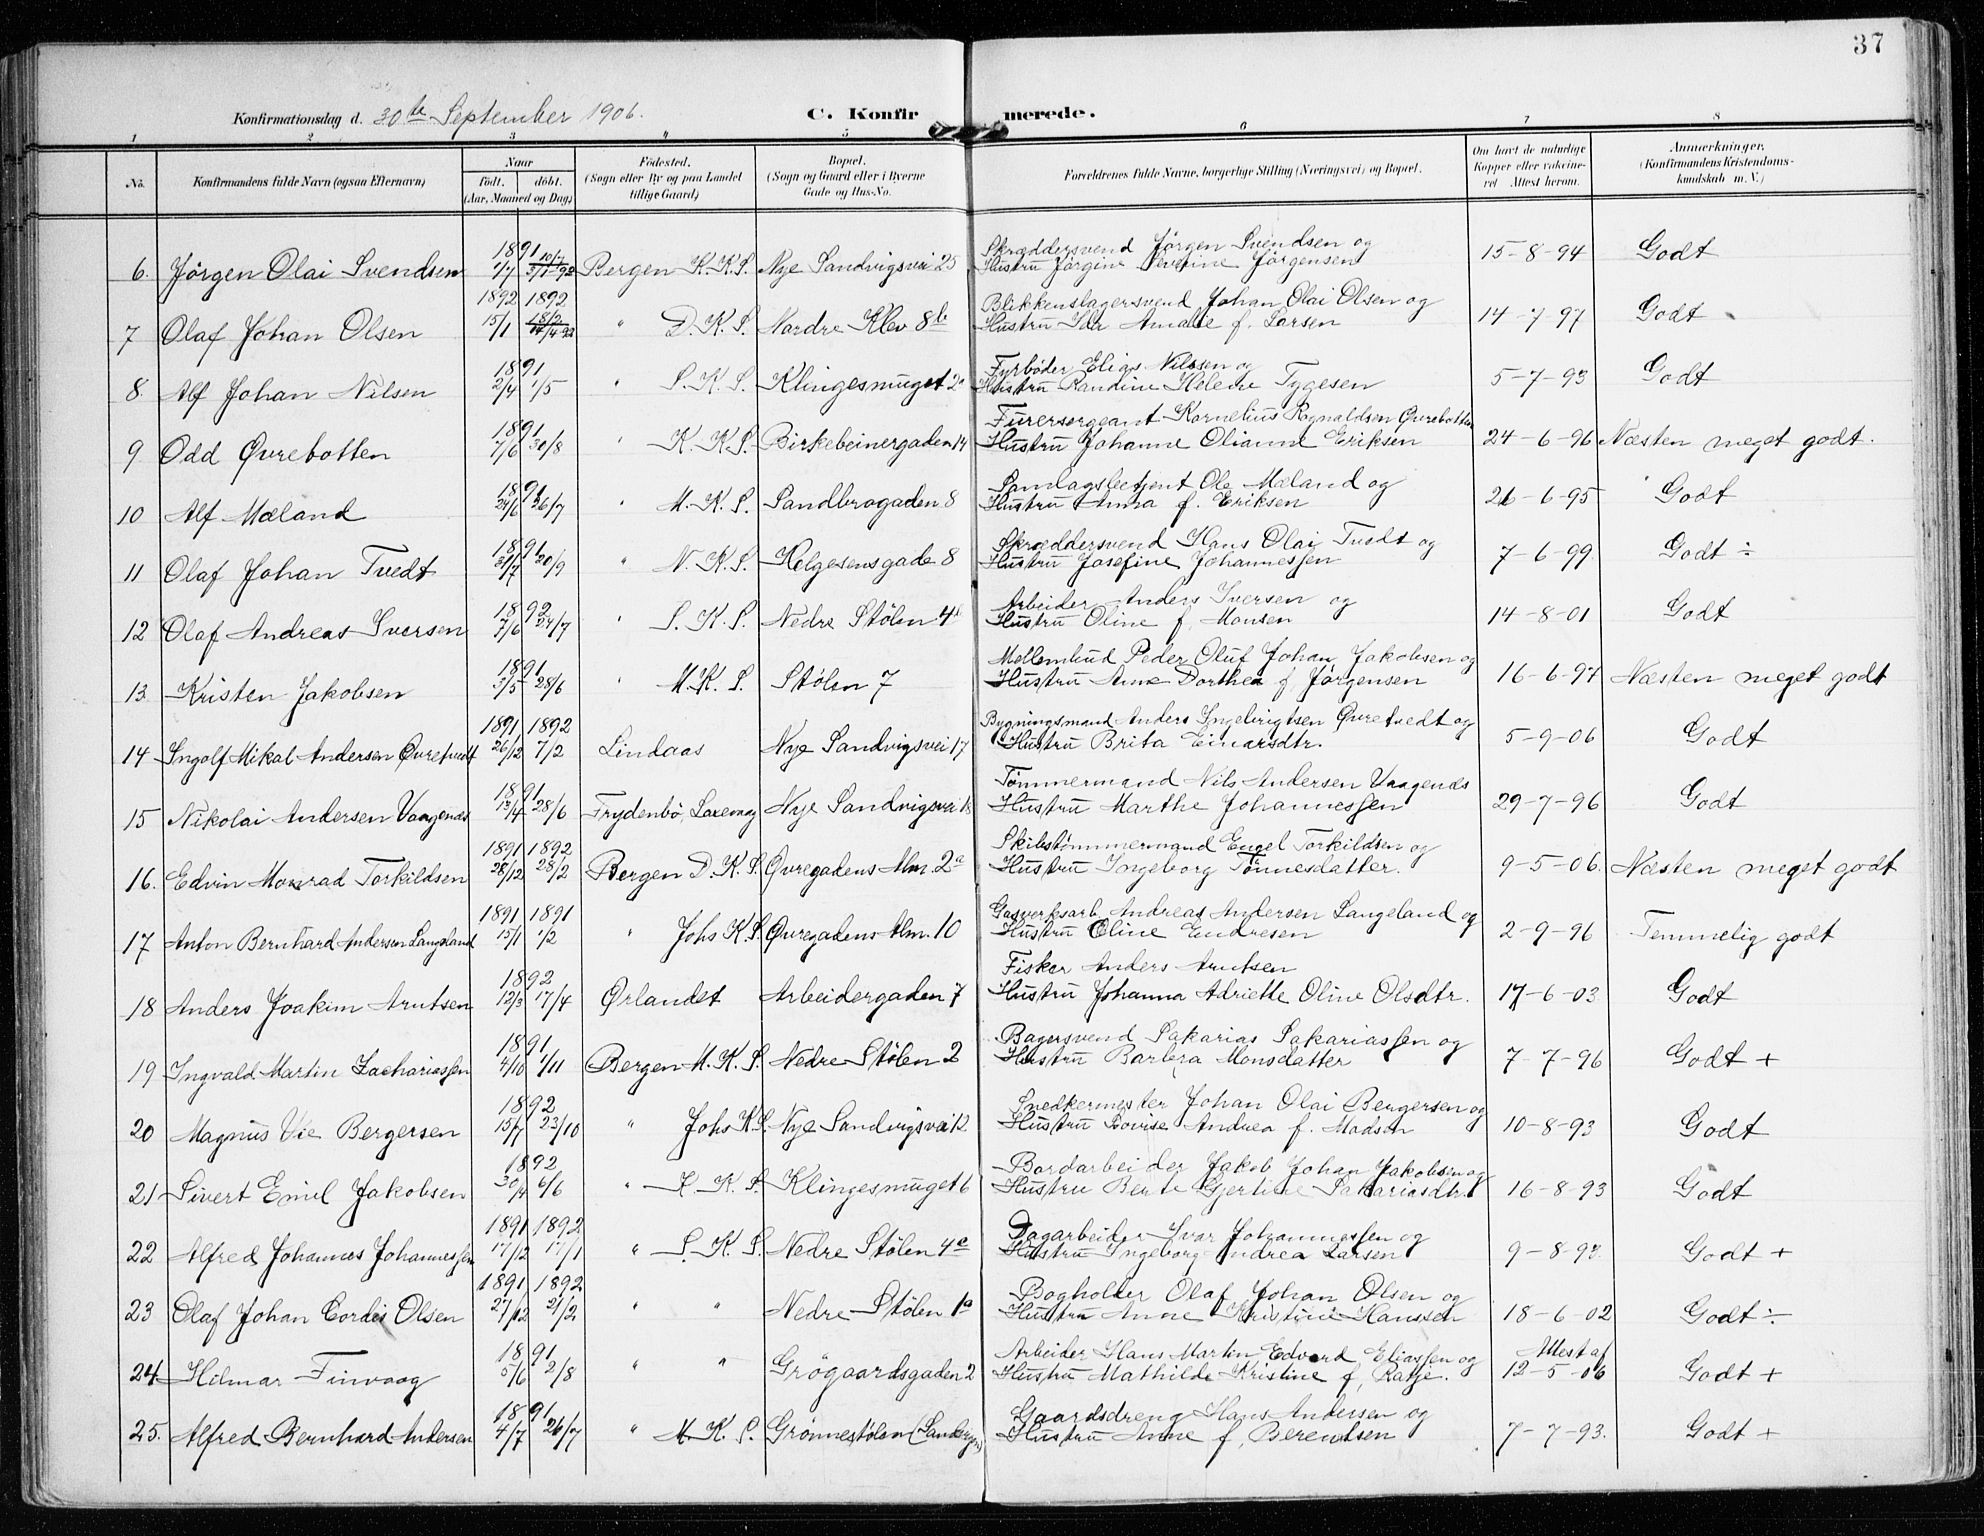 37
Konfirmationsdag d. 30te September 1906. C. Konfirmerede.
1 2 3 4 5 6 7 8
No. Konfirmandens fulde Navn (ogsaa Efternavn) Naar født. døbt. (Aar, Maaned og Dag) Fødested. (Sogn eller By og paa Landet tillige Gaard) Bopæl. (Sogn og Gaard eller i Byerne Gade og Hus-No. Forældrenes fulde Navne, borgerlige Stilling (Næringsvei) og Bopæl. Om havt de naturlige Kopper eller vakcineret Attest herom. Anmærkninger. (Konfirmandens Kristendomskundskab m. V.)
6. Jörgen Olai Svendsen 1891 1/7 10/7 3/1-92 Bergen K.K.S. Nye Sandvigsvei 25 Skræddersvend Jörgen Svendsen og Hustru Jörgine Severine Jörgensen 15-8-94 Godt
7 Olaf Johan Olsen 1892 15/1 1892 18/2 17/4-92 " D.K.S. Nordre Klev 8b Blikkenslagersvend Johan Olai Olsen og Hustru Ida Amalie f. Larsen 14-7-97 Godt
8. Alf Johan Nilsen 1891 2/4 1/5 " S.K.S. Klingesmuget 2a Fyrbøder Elias Nilssen og Hustru Randine Helene Tygesen 5-7-93 Godt
9 Odd Øvrebotten 1891 7/6 30/8 " K.K.S. Birkebeinergaden 14 Furersergeant Kornelius Ragnaldsen Øvrebotten Hustru Johanne Olianne Eriksen 24-6-96 Næsten meget godt.
10 Alf Mæland 1891 24/6 26/7 " M.K.S. Sandbrogaden 8 Samlagsbetjent Ole Mæland og Hustru Anna f. Eriksen 26-6-95 Godt
11 Olaf Johan Tvedt 1891 31/7 20/9 " N.K.S. Helgesensgade 8 Skræddersvend Hans Olai Tvedt og Hustru Josefine Johannessen 7-6-99. Godt ÷
12 Olaf Andreas Iversen 1892 7/6 24/7 " S.K.S. Nedre Stølen 4b Arbeider Anders Iversen og Hustru Oline f. Monsen 14-8-01 Godt
13. Kristen Jakobsen 1891 3/5 28/6 " M.K.S. Stølen 7 Mellembud Peder Oluf Johan Jakobsen og Hustru Anne Dorthea f Jörgensen 16-6-97 Næsten meget godt
14 Ingolf Mikal Andersen Øvretvedt 1891 26/12 1892 7/2 Lindaas Nye Sandvigsvei 17 Bygningsmand Anders Ingebrigtsen Øvretvedt og Hustru Brita Einarsdtr. 5-9-06 Godt
15 Nikolai Andersen Vaagenes 1891 13/4 28/6 Frydenbö, Laxevaag Nye Sandvigsvei 18 Tømmermand Nils Andersen Vaagenes Hustru Marthe Johannessen 29-7-96 Godt
16. Edvin Monrad Torkildsen 1891 28/12 1892 28/2 Bergen D.K.S. Øvregadens Alm. 2a Skibstömmermand Engel Torkildsen og Hustru Ingeborg Tönnesdatter. 9-5-06. Næsten meget godt
17 Anton Bernhard Andersen Langeland 1891 15/1 1891 1/2 " Johs K.S. Øvregadens Alm. 10 Gasverksarb. Andreas Andersen Langeland og Hustru Oline Endresen 2-9-96 Temmelig godt
18 Anders Joakim Arntsen 1892 12/3 17/4 Ørlandet Arbeidergaden 7 Fisker Anders Arntsen Hustru Johanna Adriette Oline Olsdtr. 17-6-03 Godt
19 Ingvald Martin Zachariassen 1891 4/10 1/11 Bergen M.K.S. Nedre Stølen 2 Bagersvend Sakarias Sakariassen og Hustru Barbra Monsdatter 7-7-96 Godt +
20 Magnus Vie Bergersen 1892 15/7 23/10 " Johs K.S. Nye Sandvigsvei 12 Snedkermester Johan Olai Bergersen og Hustru Lovise Andrea f. Madsen 10-8-93 Godt
21 Sivert Emil Jakobsen 1892 30/4 6/6 " K.K.S. Klingesmuget 6 Bordarbeider Jakob Johan Jakobsen og Hustru Berte Gjertine Sakariasdtr. 16-8-93 Godt
22 Alfred Johannes Johannessen 1891 17/12 1892 17/1 " S.K.S. Nedre Stølen 4a Dagarbeider Ivar Johannessen og Hustru Ingeborg Andrea Larsen 9-8-97. Godt +
23 Olaf Johan Cordes Olsen 1891 27/12 1892 2/2 " " Nedre Stølen 1a Bogholder Olaf Johan Olsen og Hustru Anne Kristine Hanssen 18-6-02 Godt ÷
24 Hilmar Finvaag 1891 5/6 2/8 " " Grögaardsgaden 2 Arbeider Hans Martin Edvard Eliassen og Hustru Mathilde Kristine f, Ratje. Attest af 12-5-06 Godt +
25. Alfred Bernhard Andersen 1891 4/7 26/7 " M.K.S. Grönnestölen (Landeveien) Gaardsdreng Hans Andersen og Hustru Anne f, Berentsen 7-7-93. Godt +